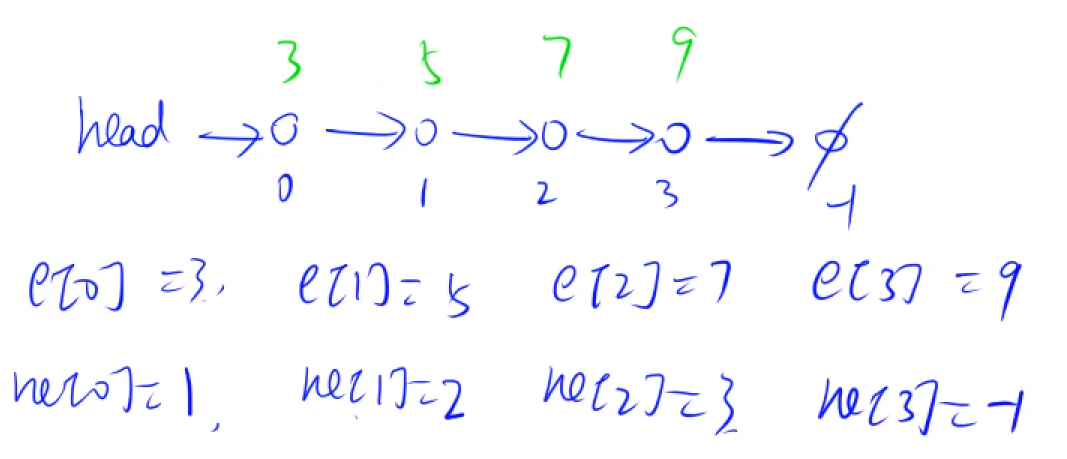 3 5 7 9
head → o → o → o → o → ∅
0 1 2 3 -1
e[0]=3, e[1]=5 e[2]=7 e[3]=9
ne[0]=1, ne[1]=2 ne[2]=3 ne[3]=-1